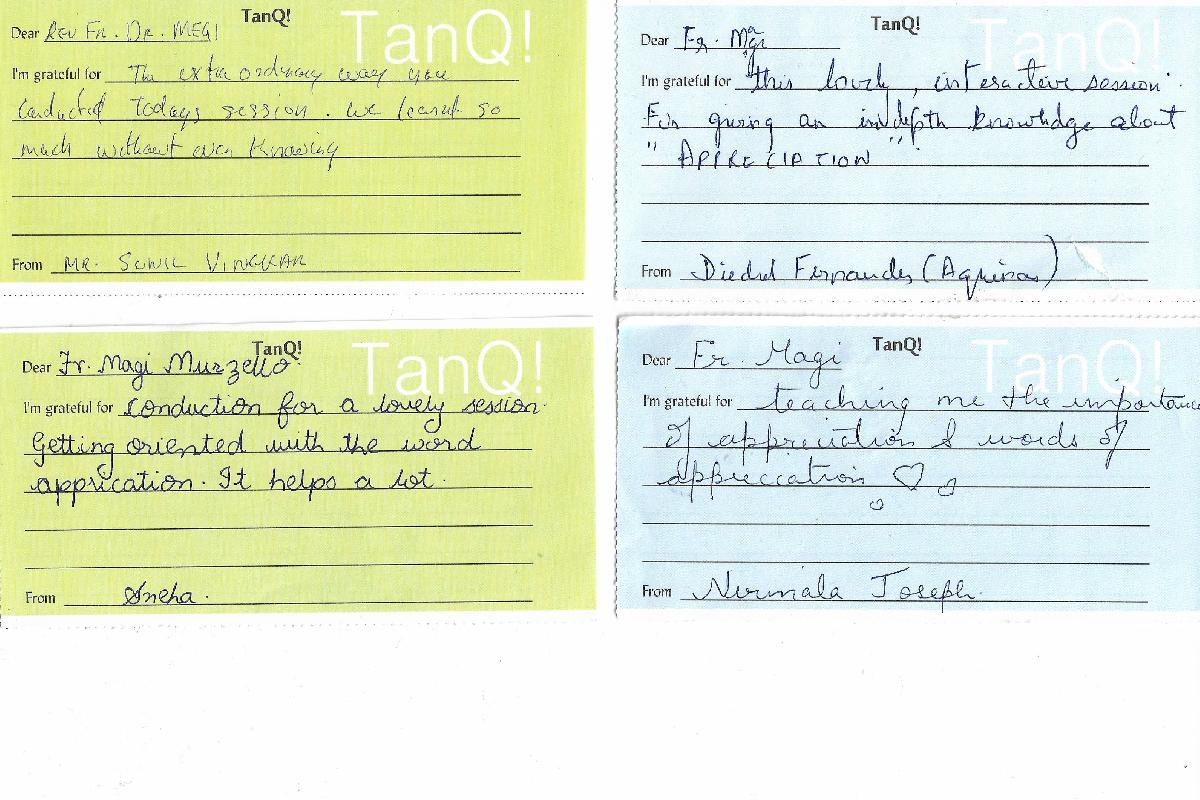 TanQ!
TanQ!
Dear Rev Fr. Dr. MEGI
I'm grateful for The extra ordinary way you
conducted todays session. we learnt so
much without even knowing
From MR. SUNIL
TanQ!
TanQ!
Dear Fr. Magi
I'm grateful for this lovely, interactive session.
For giving an in depth knowledge about
"APPRECIATION".
From Fernandes (Aquinas)
TanQ!
TanQ!
Dear Fr. Magi Murzello.
I'm grateful for conduction for a lovely session.
Getting oriented with the word
apprication. It helps a lot.
From Sneha.
TanQ!
TanQ!
Dear Fr. Magi
I'm grateful for teaching me the importance
of appreciation & words of
appreciation
From Nirmala Joseph.